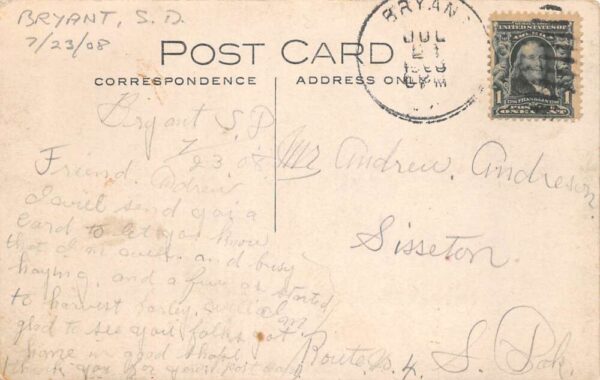 BRYANT, S.D.
7/23/08
POST CARD
CORRESPONDENCE
ADDRESS ONLY
BRYANT
JUL
1908
PM
Bryant S D
7/23 08
Friend. Andrew
I will send you a
Card to let you know
that I'm and busy
haying. and a few started
to harvest barley. well I am
glad to see you folks got
home in good shape
thank you for your post card
Mr Andrew. Andreson.
Sisseton.
Route No. 4. S. Dak.
1
ONE CENT